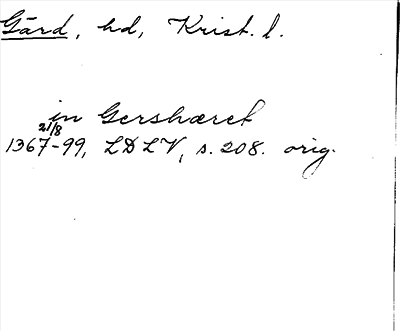 Gärd, hd, Krist. l.
in Gershæret
21/8
1367-99, LDLV, s. 208. orig.